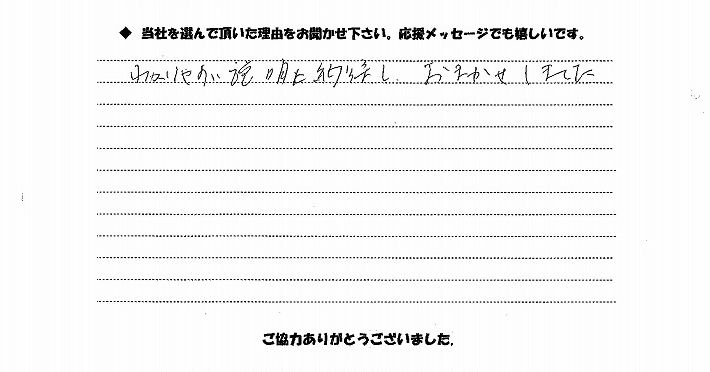 ◆ 当社を選んで頂いた理由をお聞かせ下さい。応援メッセージでも嬉しいです。
説明に納得し、おまかせしました
ご協力ありがとうございました。